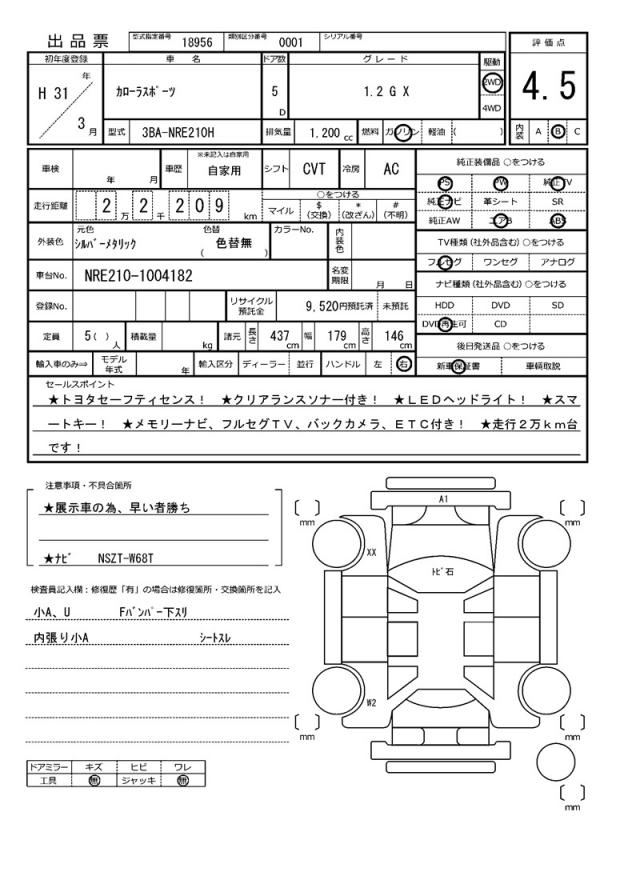 出品票 型式指定番号 18956 類別区分番号 0001 シリアル番号
初年度登録 車名 ドア数 グレード 駆動 評価点
H 31 年 3 月 カローラスポーツ 5 D 1.2 G X 2WD 4WD 4.5
型式 3BA-NRE210H 排気量 1.200 cc 燃料 ガソリン 軽油 ( ) 内装 A B C
車検 年 月 車歴 ※未記入は自家用 自家用 シフト CVT 冷房 AC
走行距離 2 万 2 千 2 0 9 km ○をつける マイル $ (交換) * (改ざん) # (不明)
外装色 元色 シルバーメタリック 色替 ( 色替無 ) カラーNo. 内装色
車台No. NRE210-1004182 名変期限 月 日
登録No. リサイクル預託金 9,520円預託済 未預託
定員 5( ) 人 積載量 kg 諸元 長さ 437 cm 幅 179 cm 高さ 146 cm
輸入車のみ⇒ モデル年式 年 輸入区分 ディーラー 並行 ハンドル 左 右
純正装備品 ○をつける
PS PW 純正TV
純正ナビ 革シート SR
純正AW エアB ABS
TV種類 (社外品含む) ○をつける
フルセグ ワンセグ アナログ
ナビ種類 (社外品含む) ○をつける
HDD DVD SD
DVD再生可 CD
後日発送品 ○をつける
新車保証書 車輌取説
セールスポイント
★トヨタセーフティセンス! ★クリアランスソナー付き! ★LEDヘッドライト! ★スマ
ートキー! ★メモリーナビ、フルセグTV、バックカメラ、ETC付き! ★走行2万km台
です!
注意事項・不具合箇所
★展示車の為、早い者勝ち
★ナビ NSZT-W68T
検査員記入欄:修復歴「有」の場合は修復箇所・交換箇所を記入
小A、U Fバンパー下スリ
内張り小A シートスレ
ドアミラー キズ ヒビ ワレ
工具 無 ジャッキ 無
A1
mm mm
XX
トビ石
W2
mm mm
mm